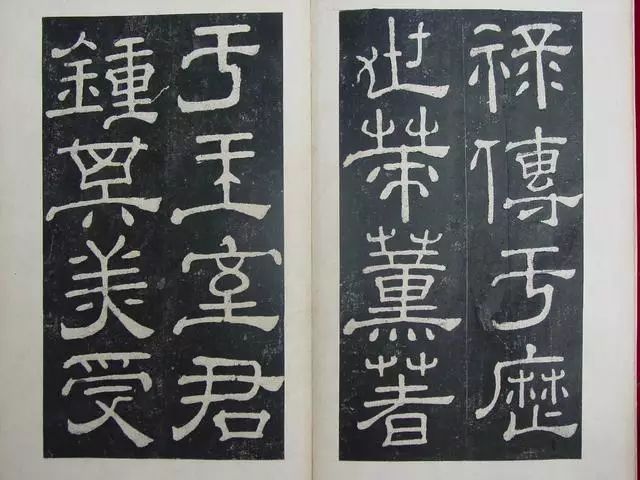 禄傳亏歷
世策薰著
亏王室君
鍾其美受